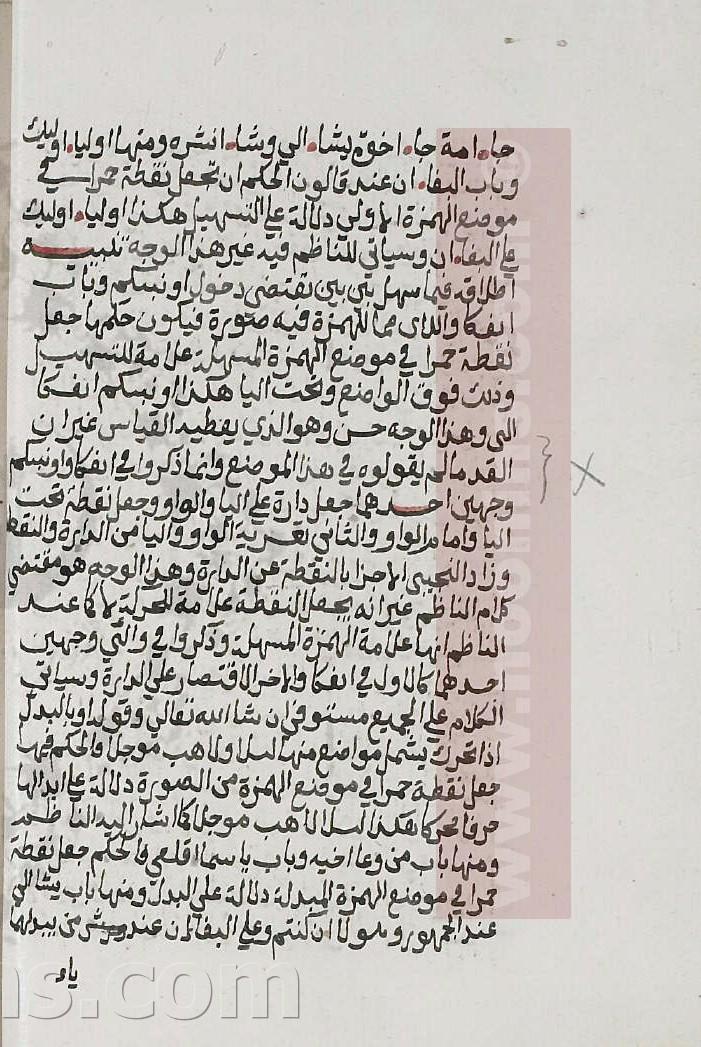 جاء امة جاء اخوة يشاء الي وشاء انشره ومنها اولياء اوليك
وباب البغاء ان عند قالون الحكم ان تجعل نقطة حمرا في
موضع الهمزة الاولي دلالة علي التسهيل هكذا اولياء اوليك
علي البغاء ان وسياتي للناظم فيه غير هذا الوجه تنبيه
اطلاقه فيما سهل بين بين يقتضي دخول اونبيكم وباب
ايفكا واللاى مما للهمزة فيه صورة فيكون حكمها جعل
نقطة حمرا في موضع الهمزة المسهلة علامة للتسهيل
وذلك فوق الواضع وتحت اليا هكذا اونبيكم ايفكا
الى وهذا الوجه حسن وهو الذي يعطيه القياس غير ان
القدما لم يقولوه في هذا الموضع وانما ذكروا في ايفكا واونبيكم
وجهين احدهما جعل دارة علي اليا والواو وجعل نقطة تحت
اليا وامام الواو والثاني تعرية الواو واليا من الدارة والنقط
وزاد التجيبي الاجزا بالنقطة عن الدارة وهذا الوجه هو مقتضي
كلام الناظم غير انه يجعل النقطة علامة للحركة لا كما عند
الناظم انها علامة الهمزة المسهلة وذكروا في والي وجهين
احدهما كالاول في ايفكا والاخر الاقتصار علي الدارة وسياتي
الكلام علي الجميع مستوفى ان شا الله تعالي وقوله او بالبدل
اذا تحرك يشمل مواضع منها ليلا ولاهب موجلا والحكم فيها
جعل نقطة حمرا في موضع الهمزة من الصورة دلالة علي ابدالها
حرفا محركا هكذا ليلا لاهب موجلا كما اشار اليه الناظم
ومنها باب من وعا اخيه وباب يا سما اقلعي فالحكم جعل نقطة
حمرا في موضع الهمزة المبدلة دلالة علي البدل ومنها باب يشا الي
عند الجمهور و ان كنتم وعلي البغاء ان عند ورش من يبدلها
ياء
www.
ns.com